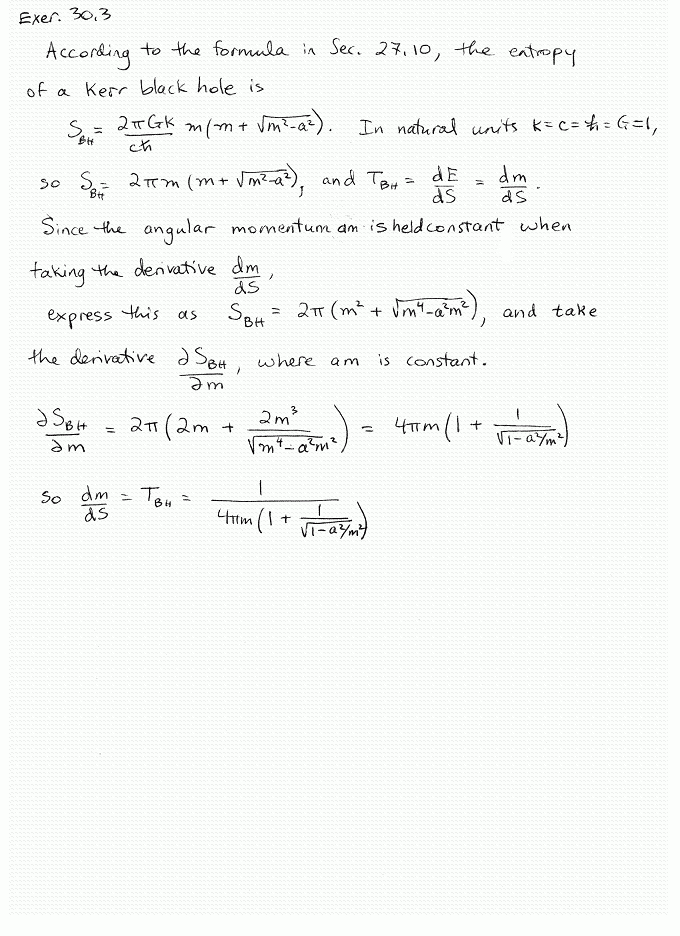 Exer. 30.3
According to the formula in Sec. 27.10, the entropy
of a Kerr black hole is
S_BH = 2πGk/cħ m(m + √(m²-a²)). In natural units k=c=ħ=G=1,
so S_BH = 2πm (m + √(m²-a²)), and T_BH = dE/dS = dm/dS.
Since the angular momentum am is held constant when
taking the derivative dm/dS,
express this as S_BH = 2π(m² + √(m⁴-a²m²)), and take
the derivative ∂S_BH/∂m, where am is constant.
∂S_BH/∂m = 2π(2m + 2m³/√(m⁴-a²m²)) = 4πm(1 + 1/√(1-a²/m²))
so dm/dS = T_BH = 1/(4πm(1 + 1/√(1-a²/m²)))